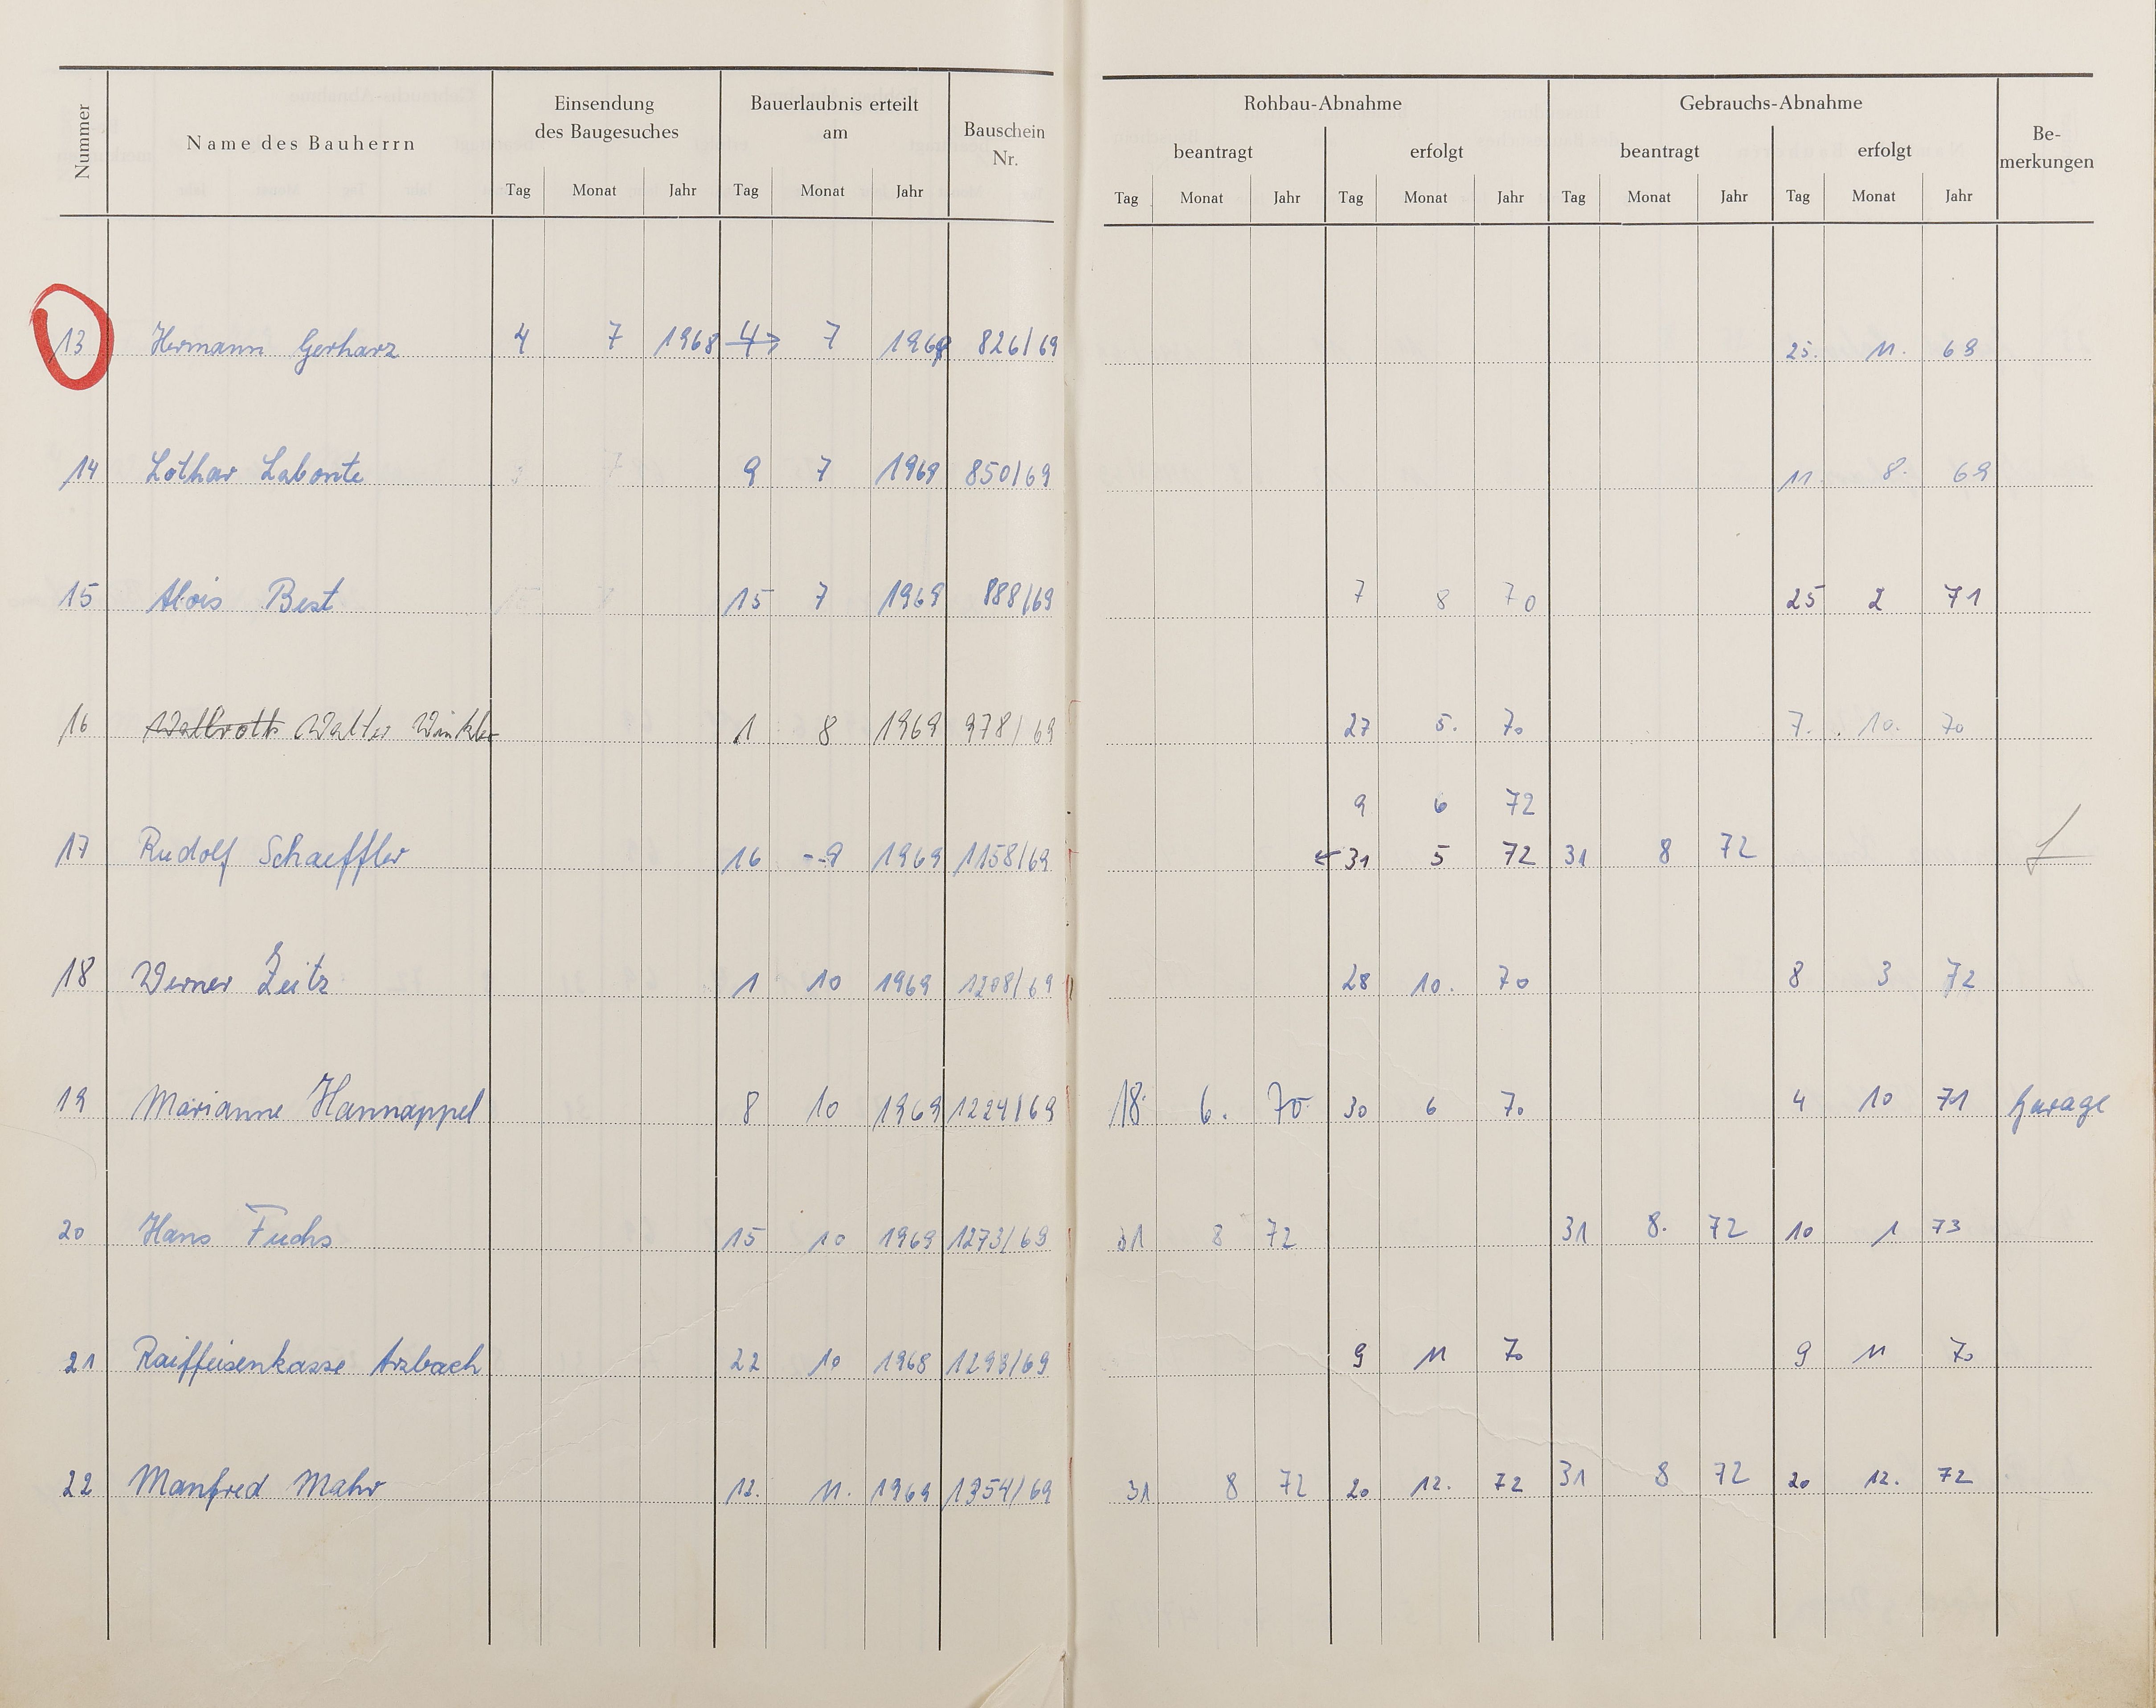 Nummer Name des Bauherrn Einsendung des Baugesuches Bauerlaubnis erteilt am Bauschein Nr. Rohbau-Abnahme Gebrauchs-Abnahme Be-merkungen
beantragt erfolgt beantragt erfolgt
Tag Monat Jahr Tag Monat Jahr Tag Monat Jahr Tag Monat Jahr Tag Monat Jahr Tag Monat Jahr
13 Hermann Gerharz 4 7 1968 4 7 1969 826/69 25. 11. 69
14 Lothar Labonte 9 7 1969 850/69 11. 8. 69
15 Alois Best 15 7 1969 888/69 7 8 70 25 2 71
16 Wallroth Walter Winkler 1 8 1969 978/69 27 5. 70 7. 10. 70
9 6 72
17 Rudolf Schaeffler 16 9 1969 1158/69 31 5 72 31 8 72
18 Werner Zeitz 1 10 1969 1208/69 28 10. 70 8 3 72
19 Marianne Hannappel 8 10 1969 1224/69 18. 6. 70 30 6 70 4 10 71 Garage
20 Hans Fuchs 15 10 1969 1273/69 31 8 72 31 8. 72 10 1 73
21 Raiffeisenkasse Arzbach 22 10 1968 1293/69 9 11 70 9 11 70
22 Manfred Mahr 12. 11. 1969 1354/69 31 8 72 20 12. 72 31 8 72 20 12. 72